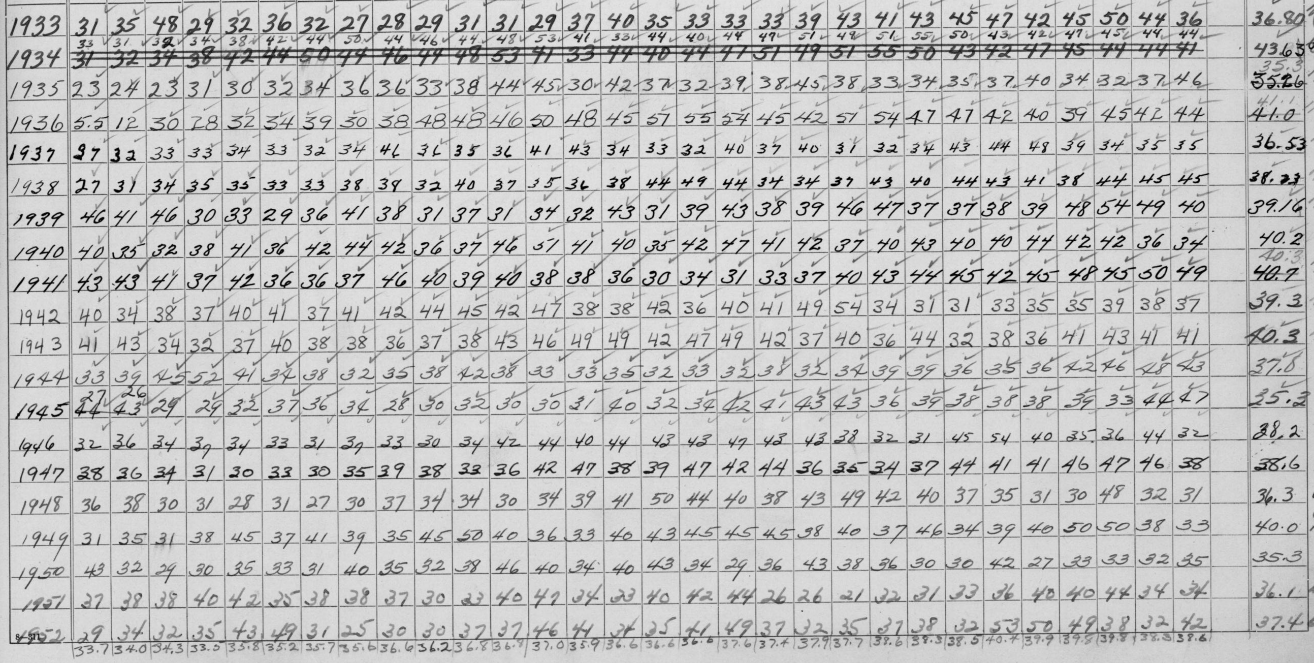 1933 31 35 48 29 32 36 32 27 28 29 31 31 29 37 40 35 33 33 33 39 43 41 43 45 47 42 45 50 44 36 36.80
33 31 32 34 38 42 44 50 44 46 44 48 53 41 33 44 40 44 47 51 49 51 55 50 43 42 47 45 44 44
1934 31 32 34 38 42 44 50 44 46 44 48 53 41 33 44 40 44 47 51 49 51 55 50 43 42 47 45 44 44 41 43.63
35.3
1935 23 24 23 31 30 32 34 36 36 33 38 44 45 30 42 37 32 39 38 45 38 33 34 35 37 40 34 32 37 46 35.26
41.1
1936 5.5 12 30 28 32 34 39 30 38 48 48 46 50 48 45 51 55 54 45 42 51 54 47 47 42 40 39 45 42 44 41.0
1937 27 32 33 33 34 33 32 34 41 36 35 36 41 43 34 33 32 40 37 40 31 32 34 43 44 48 39 34 35 35 36.53
1938 27 31 34 35 35 33 33 38 38 32 40 37 35 36 38 44 49 44 34 34 37 43 40 44 43 41 38 44 45 45 38.33
1939 46 41 46 30 33 29 36 41 38 31 37 31 34 32 43 31 39 43 38 39 46 47 37 37 38 39 48 54 49 40 39.16
1940 40 35 32 38 41 36 42 44 42 36 37 46 51 41 40 35 42 47 41 42 37 40 43 40 40 44 42 42 36 34 40.2
40.3
1941 43 43 41 37 42 36 36 37 46 40 39 40 38 38 36 30 34 31 33 37 40 43 44 45 42 45 48 45 50 49 40.7
1942 40 34 38 37 40 41 37 41 42 44 45 42 47 38 38 42 36 40 41 49 54 34 31 31 33 35 35 39 38 37 39.3
1943 41 43 34 32 37 40 38 38 36 37 38 43 46 49 49 42 47 49 42 37 40 36 44 32 38 36 41 43 41 41 40.3
1944 33 39 45 52 41 34 38 32 35 38 42 38 33 33 35 32 33 32 38 32 34 39 39 36 35 36 42 46 48 43 37.8
27 26
1945 44 43 29 29 32 37 36 34 28 30 32 30 30 31 40 32 34 42 41 43 43 36 39 38 38 38 39 33 44 47 35.3
1946 32 36 34 39 34 33 31 39 33 30 34 42 44 40 44 43 43 47 43 43 38 32 31 45 54 40 35 36 44 32 38.2
1947 38 36 34 31 30 33 30 35 39 38 33 36 42 47 38 39 47 42 44 36 35 34 37 44 41 41 46 47 46 38 38.6
1948 36 38 30 31 28 31 27 30 37 34 34 30 34 39 41 50 44 40 38 43 49 42 40 37 35 31 30 48 32 31 36.3
1949 31 35 31 38 45 37 41 39 35 45 50 40 36 33 40 43 45 45 45 38 40 37 46 34 39 40 50 50 38 33 40.0
1950 43 32 29 30 35 33 31 40 35 32 38 46 40 34 40 43 34 29 36 43 38 36 30 30 42 27 33 33 32 35 35.3
1951 37 38 38 40 42 35 38 38 37 30 23 40 47 34 33 40 42 44 26 26 21 32 31 33 36 40 40 44 34 34 36.1
1952 29 34 32 35 43 49 31 25 30 30 37 37 46 44 34 35 41 49 37 32 35 37 38 32 53 50 49 38 32 42 37.4
33.7 34.0 34.3 33.5 35.8 35.2 35.7 35.6 36.6 36.2 36.8 36.8 37.0 35.9 36.6 36.6 36.8 37.6 37.4 37.9 37.7 38.6 38.3 38.5 40.4 39.9 39.8 39.8 38.3 38.6